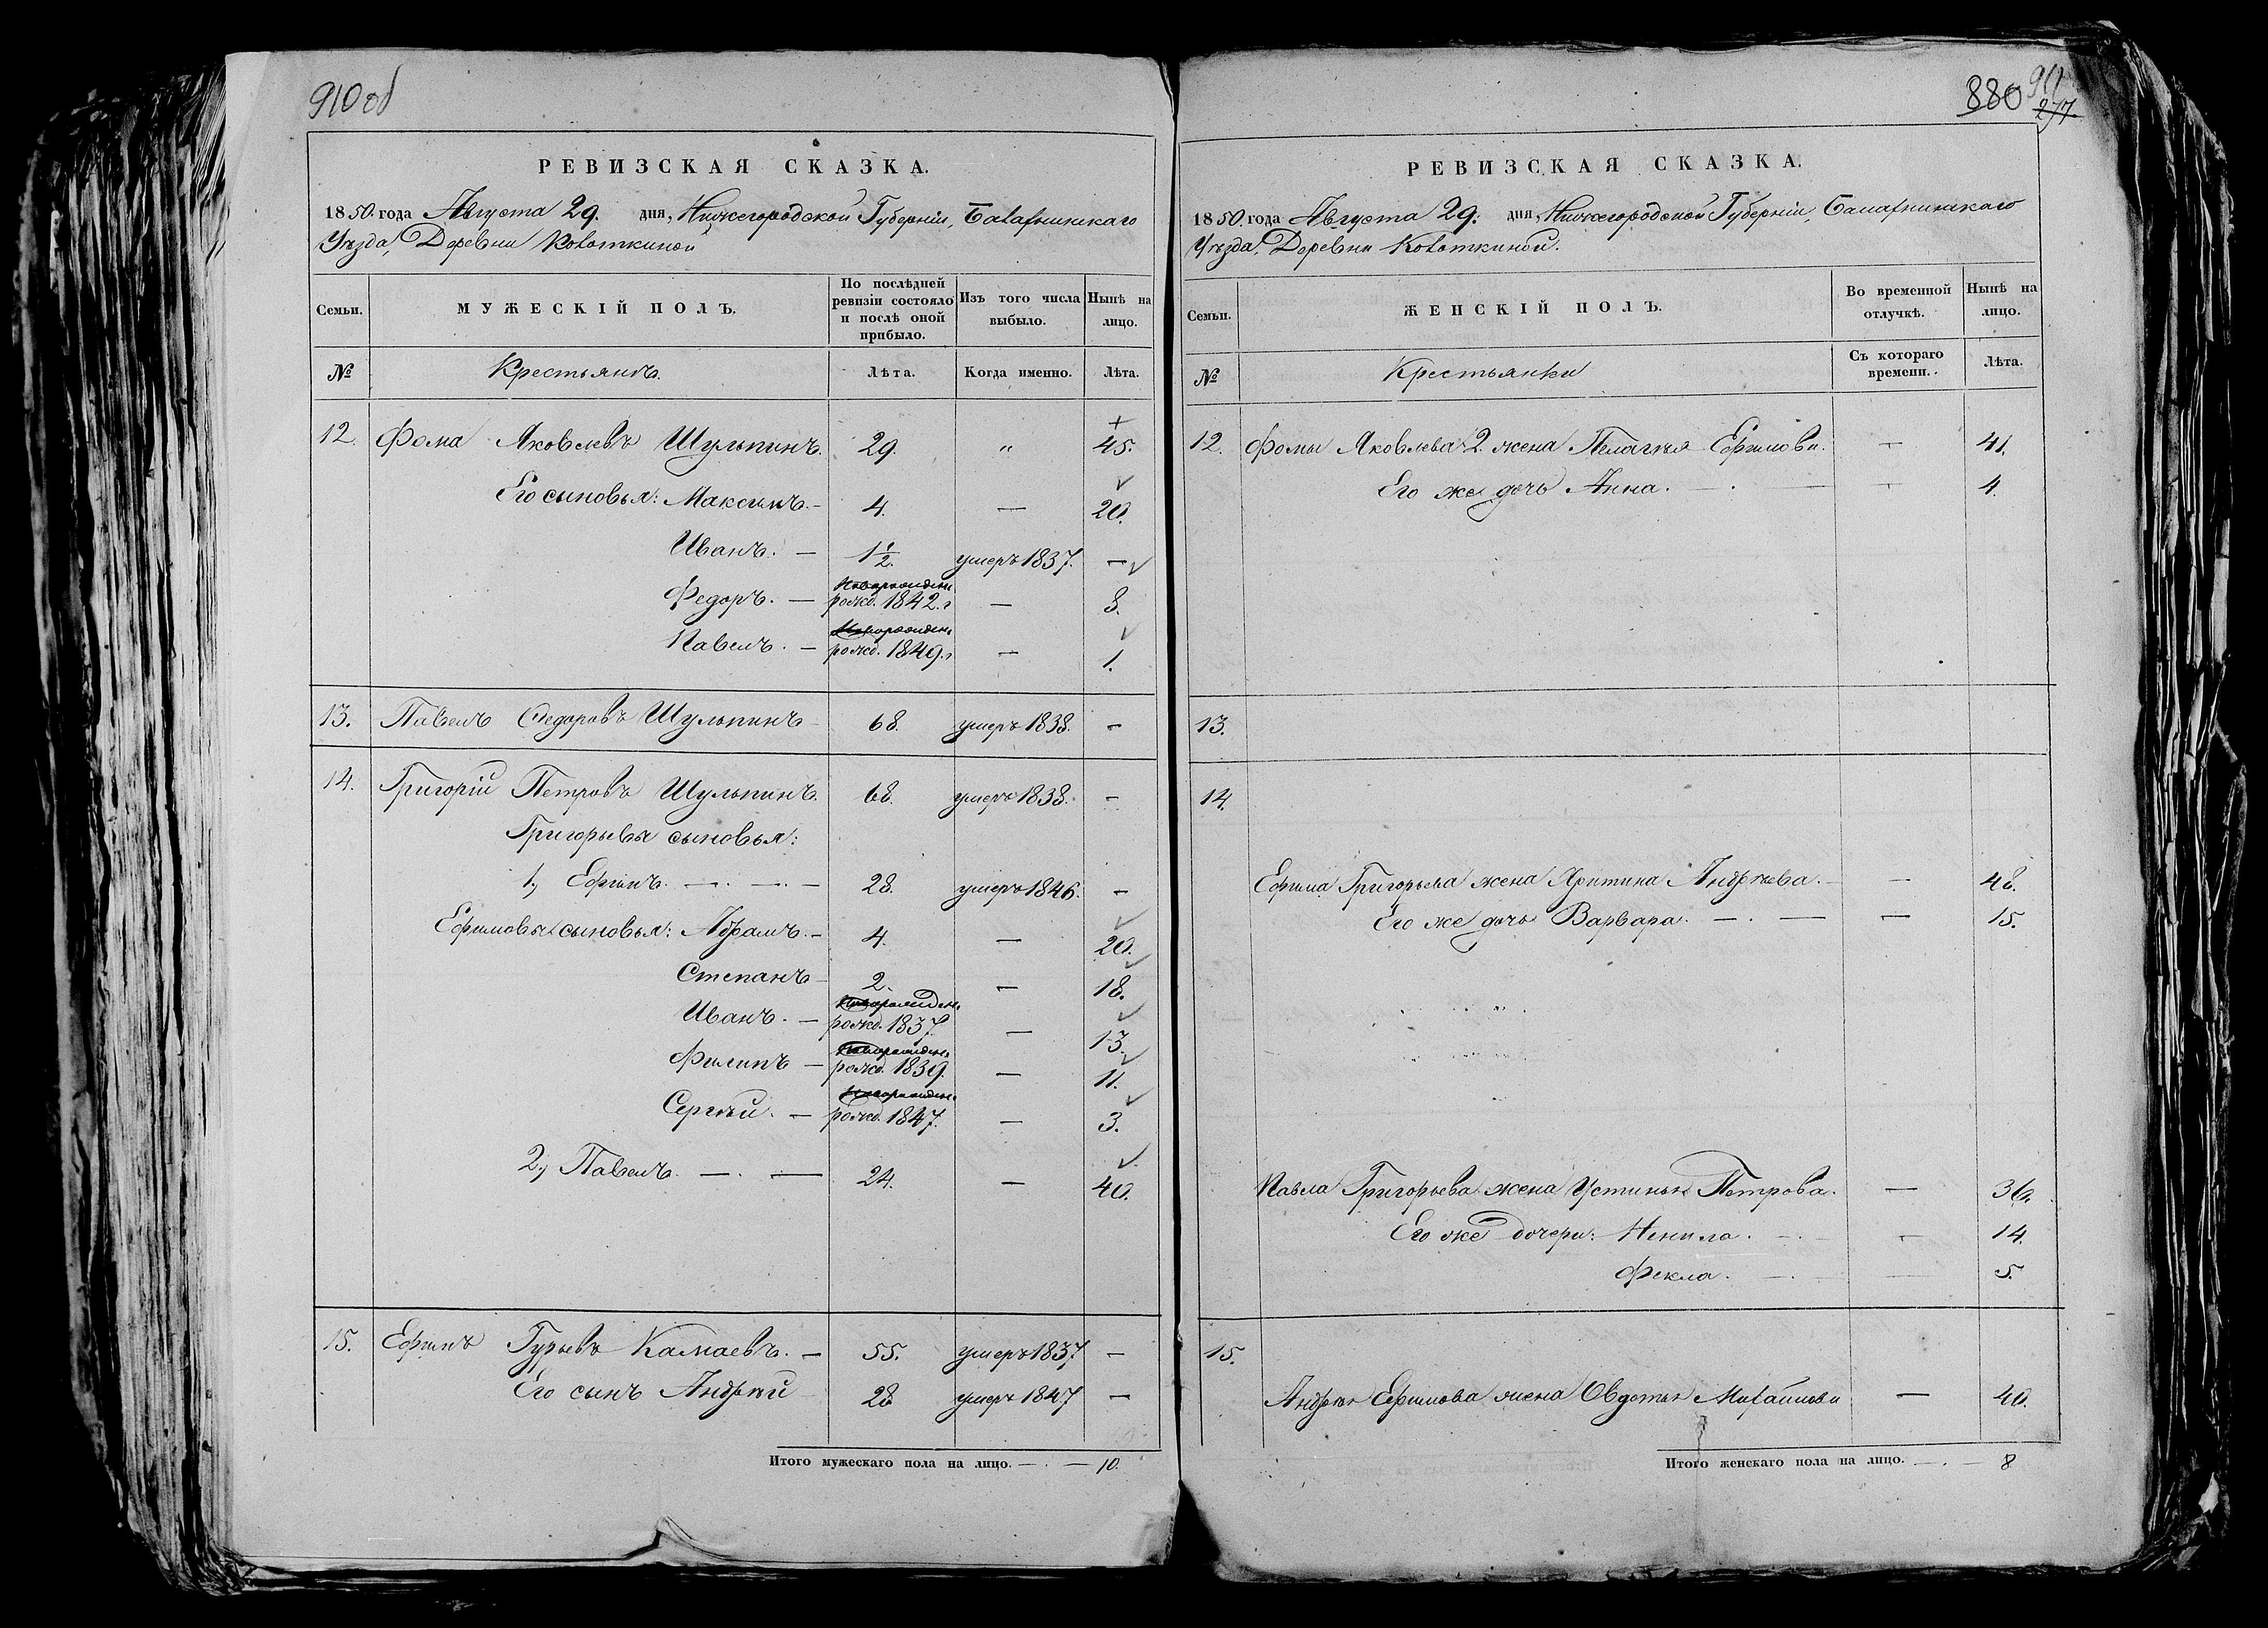 910 об
РЕВИЗСКАЯ СКАЗКА.
1850. года Августа 29. дня, Нижегородской Губерніи, Балахнинскаго
Уѣзда, Деревни Колоткиной
Семьи. МУЖЕСКІЙ ПОЛЪ. По послѣдней ревизіи состояло и послѣ оной прибыло. Изъ того числа выбыло. Нынѣ на лицо.
№ Крестьянъ. Лѣта. Когда именно. Лѣта.
12. Фома Яковлевъ Шульпинъ. 29. „ 45.
Его сыновья: Максимъ. — 4. — 20.
Иванъ. — 1 1/2. умеръ 1837. —
Федоръ. — рожд. 1842. г — 8.
Павелъ. — рожд. 1849. г — 1.
13. Павелъ Федоровъ Шульпинъ 68. умеръ 1838. —
14. Григорій Петровъ Шульпинъ. 68. умеръ 1838. —
Григорьевы сыновья:
1, Ефимъ. — . — . — 28. умеръ 1846. —
Ефимовы сыновья: Абрамъ. — 4. — 20.
Степанъ 2. — 18.
Иванъ. — новорожден. рожд. 1837. — 13.
Филипъ — новорожден. рожд. 1839. — 11.
Сергѣй. — новорожден. рожд. 1847. — 3.
2, Павелъ. — . — 24. — 40.
15. Ефимъ Гурьевъ Камаевъ. — 55. умеръ 1837 —
Его сынъ Андрей 28 умеръ 1847 —
Итого мужескаго пола на лицо. — . — 10.
880 911
277.
РЕВИЗСКАЯ СКАЗКА.
1850. года Августа 29. дня, Нижегородской Губерніи, Балахнинскаго
Уѣзда, Деревни Колоткиной.
Семьи. ЖЕНСКІЙ ПОЛЪ. Во временной отлучкѣ. Нынѣ на лицо.
№ Крестьянки Съ котораго времени. Лѣта.
12. Фомы Яковлева 2. жена Пелагѣя Ефимова. — 41.
Его же дочь Анна. — . — — 4.
13.
14.
Ефима Григорьева жена Хритина Андрѣева. — — 48.
Его же дочь Варвара. — . — — 15.
Павла Григорьева жена Устинья Петрова. — 36.
Его же дочери: Ненила. — . — 14.
Фекла. — . — — 5.
15.
Андрея Ефимова жена Овдотья Михайлова — 40.
Итого женскаго пола на лицо. — . — 8